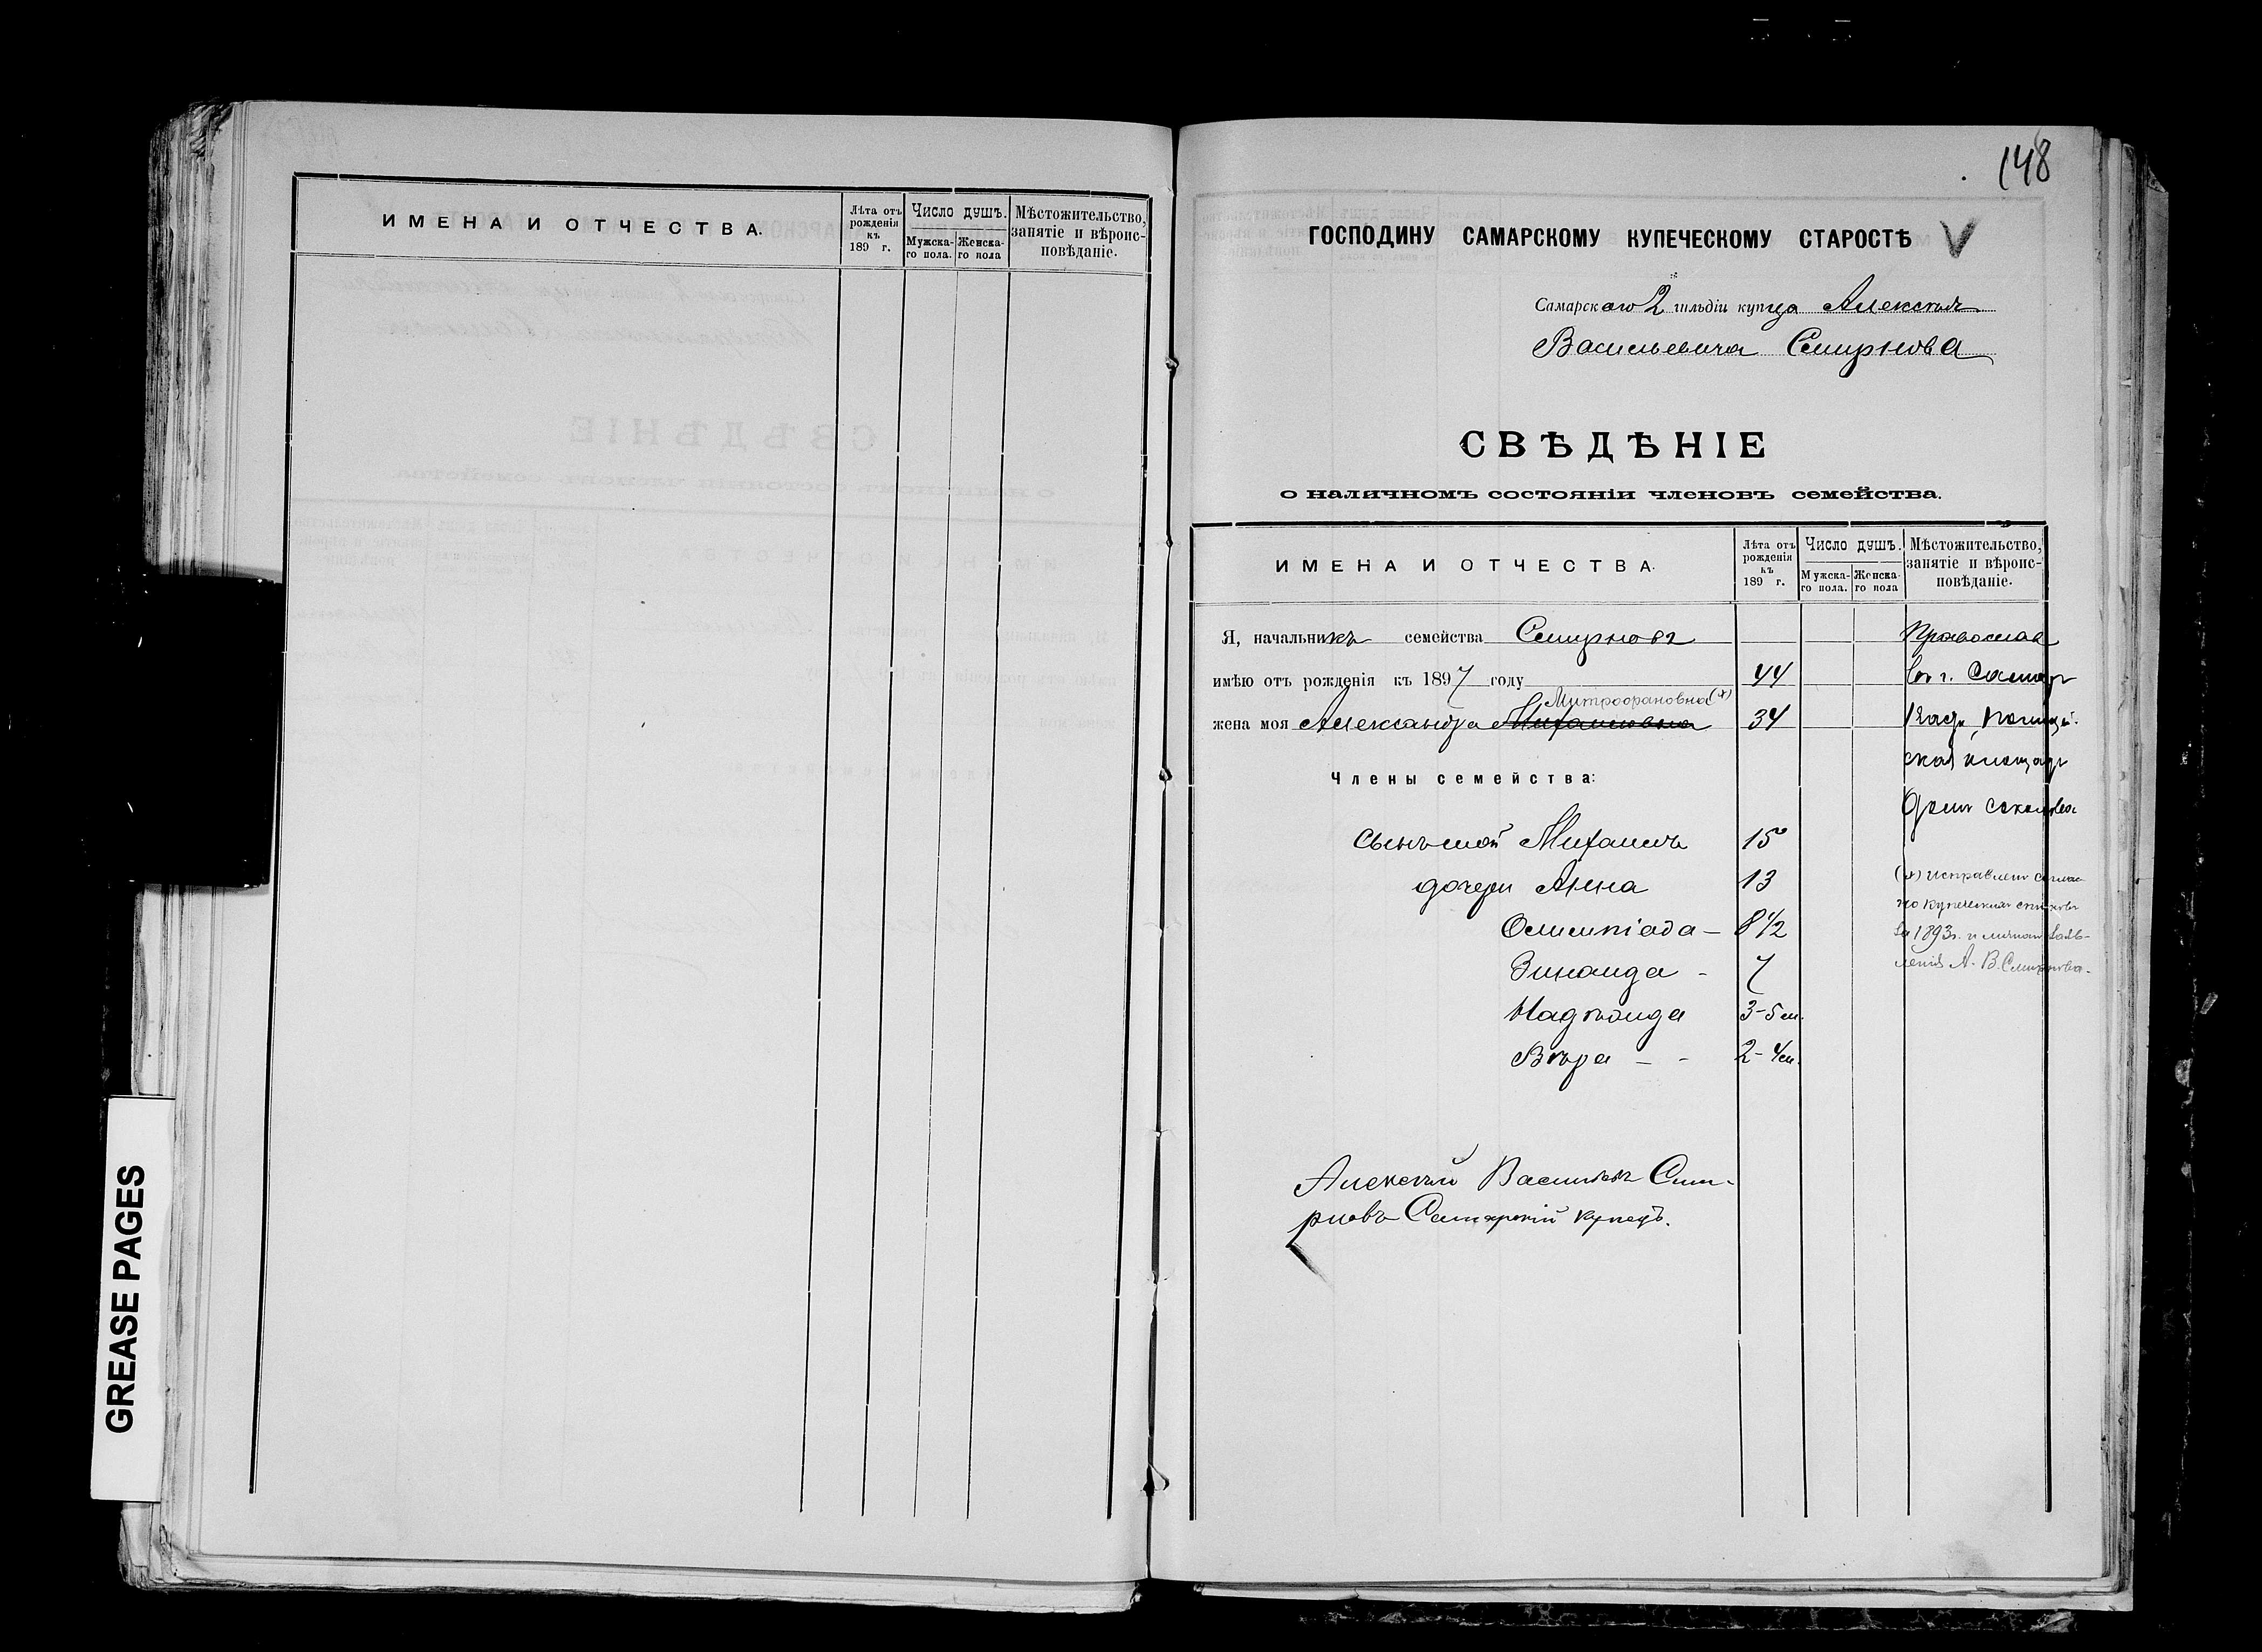 ИМЕНА И ОТЧЕСТВА.
Лѣта отъ рожденія къ 189 г.
Число душъ.
Мужска-го пола.
Женска-го пола
Мѣстожительство, занятіе и вѣроис-повѣданіе.
148
ГОСПОДИНУ САМАРСКОМУ КУПЕЧЕСКОМУ СТАРОСТѢ
Самарскаго 2 гильдіи купца Алексѣя
Васильевича Смирнова
СВѢДѢНІЕ
о наличномъ состояніи членовъ семейства.
ИМЕНА И ОТЧЕСТВА.
Лѣта отъ рожденія къ 189 г.
Число душъ.
Мужска-го пола.
Женска-го пола
Мѣстожительство, занятіе и вѣроис-повѣданіе.
Я, начальникъ семейства Смирновъ Православ
имѣю отъ рожденія къ 1897 году 44 въ г. Самар
Митрофановна (х)
жена моя Александра Михайловна 34
ская площадь
Члены семейства:
домъ
Сынъ мой Михаилъ 15
дочери Анна 13
Олимпіада — 8 1/2
Зинаида - 7
Надѣжда 3-5 м.
Вѣра — - 2-4 м.
(х) исправлено соглас-
но купеческих списковъ
за 1893 г. и личнаго заяв-
ленія А. В. Смирнова.
Алексѣй Васильевъ Смир-
рновъ Самарскій купецъ.
GREASE PAGES